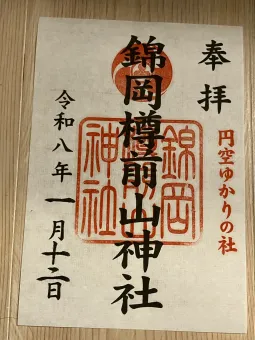 奉拝
円空ゆかりの社
錦岡樽前山神社
錦岡
神社
令和八年
一月十二日